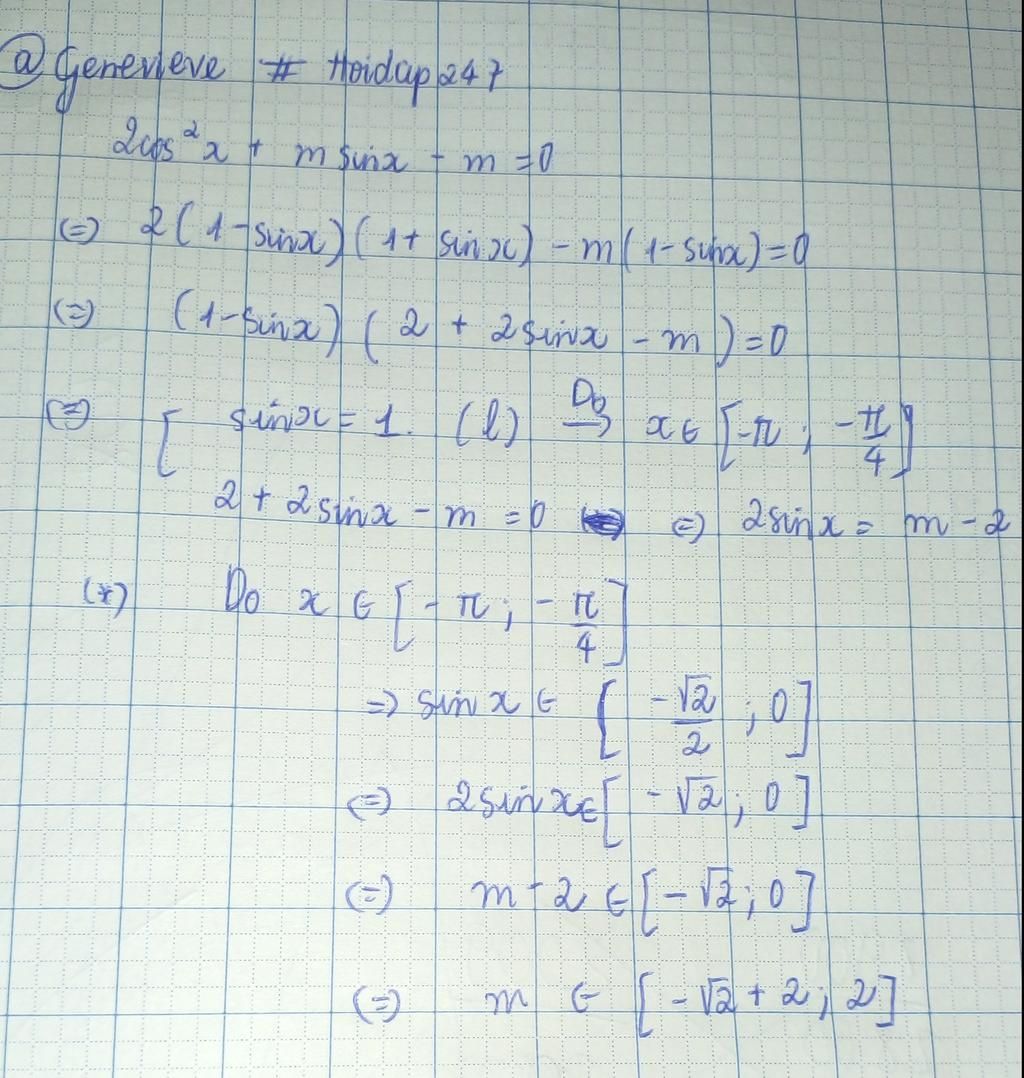 @Genevieve # Hoidap247
2cos²x + m sinx - m = 0
(=) 2(1-sinx)(1+ sinx) - m(1-sinx)=0
(=) (1-sinx)(2 + 2sinx - m)=0
(=) [ sinx = 1. (l) Do → x ∈ [-π ; -π/4]
2 + 2sinx - m = 0 (=) 2sinx = m - 2
(*) Do x ∈ [-π ; -π/4]
=> sin x ∈ [-√2/2 ; 0]
(=) 2sin x ∈ [-√2 ; 0]
(=) m - 2 ∈ [-√2 ; 0]
(=) m ∈ [-√2 + 2 ; 2]